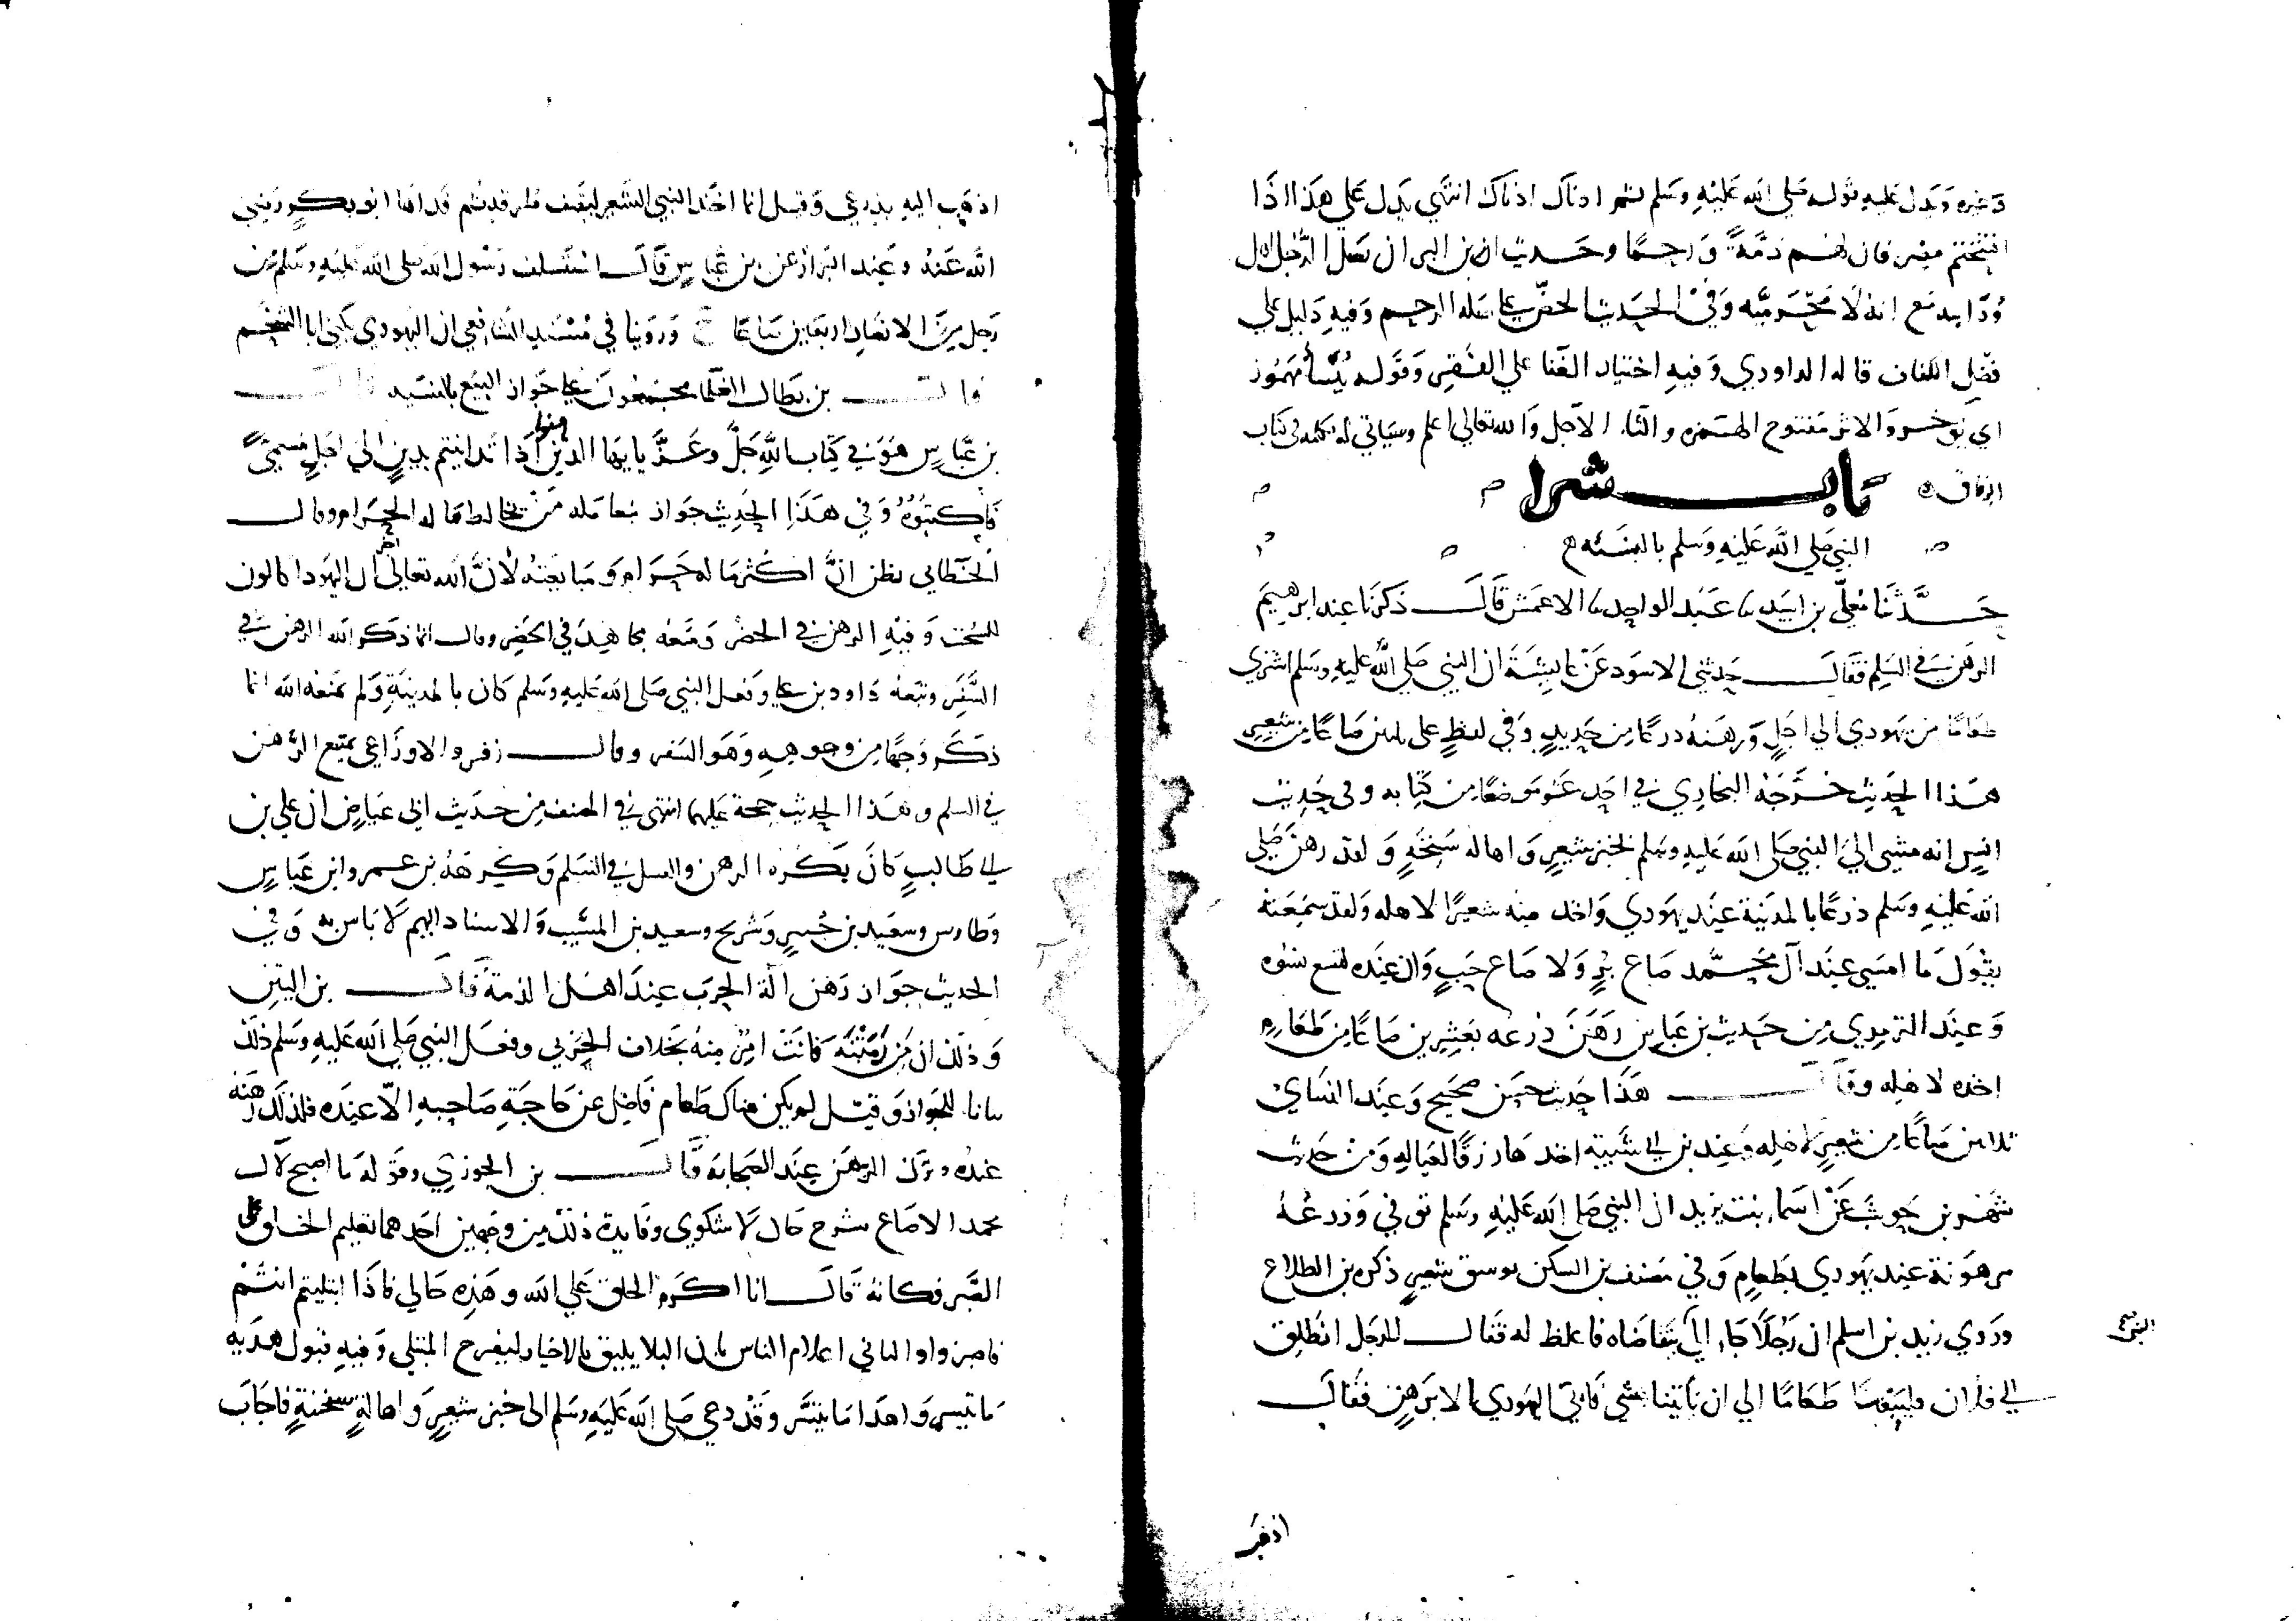 وغيره ويدل عليه قوله صلى الله عليه وسلم ثم اذناك اذناك انتهى يدل على هذا اذا
افتتحتم مصر فان لهم ذمة ورحما وحديث ان من البر ان يصل الرجل اهل
ود ابيه مع انه لا محرمية وفي الحديث الحض على صلة الرحم وفيه دليل على
فضل الكفاف قاله الداودي وفيه اختيار الغنا على الفقر وقوله ينسأ مهموز
اي يؤخر والاثر مفتوح الهمزه والثاء الاجل والله تعالى اعلم وسياتي له تكمله في كتاب
الرقاق باب شرا
النبي صلى الله عليه وسلم بالنسئه
حدثنا معلى بن اسيد نا عبد الواحد نا الاعمش قال ذكرنا عند ابرهيم
الرهن في السلم فقال حدثني الاسود عن عايشة ان النبي صلى الله عليه وسلم اشترى
طعاما من يهودي الي اجل ورهنه درعا من حديد وفي لفظ على ثلثين صاعا من شعير
هذا الحديث خرجه البخاري في احد عشر موضعا من كتابه وفي حديث
انس انه مشى الي النبي صلى الله عليه وسلم بخبز شعير واهاله سنخة ولقد رهن صلى
الله عليه وسلم درعا بالمدينة عند يهودي واخذ منه شعيرا لاهله ولقد سمعته
يقول ما امسى عند آل محمد صاع بر ولا صاع حب وان عنده لتسع نسوه
وعند الترمدي من حديث بن عباس رهن درعه بعشرين صاعا من طعام
اخذه لاهله وقال هذا حديث حسن صحيح وعند النساي
ثلاثين صاعا من شعير لاهله وعند بن ابي شيبة اخذها رزقا لعياله ومن حديث
شهر بن حوشب عن اسماء بنت يزيد ان النبي صلى الله عليه وسلم توفي ودرعه
مرهونة عند يهودي بطعام وفي مصنف بن السكن بوسق شعير ذكره بن الطلاع
وروي زيد بن اسلم ان رجلا جاء الي يتقاضاه فاغلظ له فقال للرجل انطلق
النبي
الي فلان فليبعنا طعاما الي ان ياتينا شي فابى اليهودي الا برهن فقال
اذهب
اذهب اليه بدرعي وقيل انما اخذ النبي الشعير لضيف طرقه ثم فداها ابو بكر رضي
الله عنه وعند البزار عن بن عباس قال استسلف رسول الله صلى الله عليه وسلم من
رجل من الانصار اربعين صاعا وروينا في مسند الشافعي ان اليهودي يكنى ابا الشحم
قال بن بطال العلما مجمعون على جواز البيع بالنسيه قال
بن عباس هو في كتاب الله جل وعز يايها الذين امنوا اذا تداينتم بدين الي اجل مسمى
فاكتبوه وفي هذا الحديث جواز معامله من يخالط ماله الحرام وقال
الخطابي يظن ان اكثر ماله حرام ومبايعته لان الله تعالى اخبر ان اليهود اكالون
للسحت وفيه الرهن في الحضر ومنعه مجاهد في الحضر وقال انما ذكر الله الرهن في
السفر وتبعه داود بن علي وفعل النبي صلى الله عليه وسلم كان بالمدينة ولم يمنعه الله انما
ذكر وجها من وجوهه وهو السفر وقال زفر والاوزاعي يمنع الرهن
في السلم وهذا الحديث حجة عليهما انتهى في المصنف من حديث ابي عياض ان علي بن
ابي طالب كان يكره الرهن والقبيل في السلم وكرهه بن عمر وابن عباس
وطاوس وسعيد بن جبير وشريح وسعيد بن المسيب والاسناد اليهم لا باس به وفي
الحديث جواز رهن آلة الحرب عند اهل الذمة قال بن التين
وذلك ان من رهنته فانت امن منه بخلاف الحربي وفعل النبي صلى الله عليه وسلم ذلك
بيانا للجواز وقيل لم يكن هناك طعام فاضل عن حاجة صاحبه الا عنده فلذلك رهنه
عنده وترك الرهن عند الصحابه قال بن الجوزي وقوله ما اصبح لآل
محمد الا صاع شرح حال لا شكوي وفايدة ذلك من وجهين احدهما تعليم الخلق
الصبر فكانه قال انا اكرم الخلق علي الله وهذه حالي فاذا ابتليتم انتم
فاصبروا والثاني اعلام الناس بان البلا يليق بالاخيار ليفرح المبتلي وفيه قبول هديه
ما تيسر واهدا ما تيسر وقد دعي صلى الله عليه وسلم الى خبز شعير واهالة سنخنة فاجاب